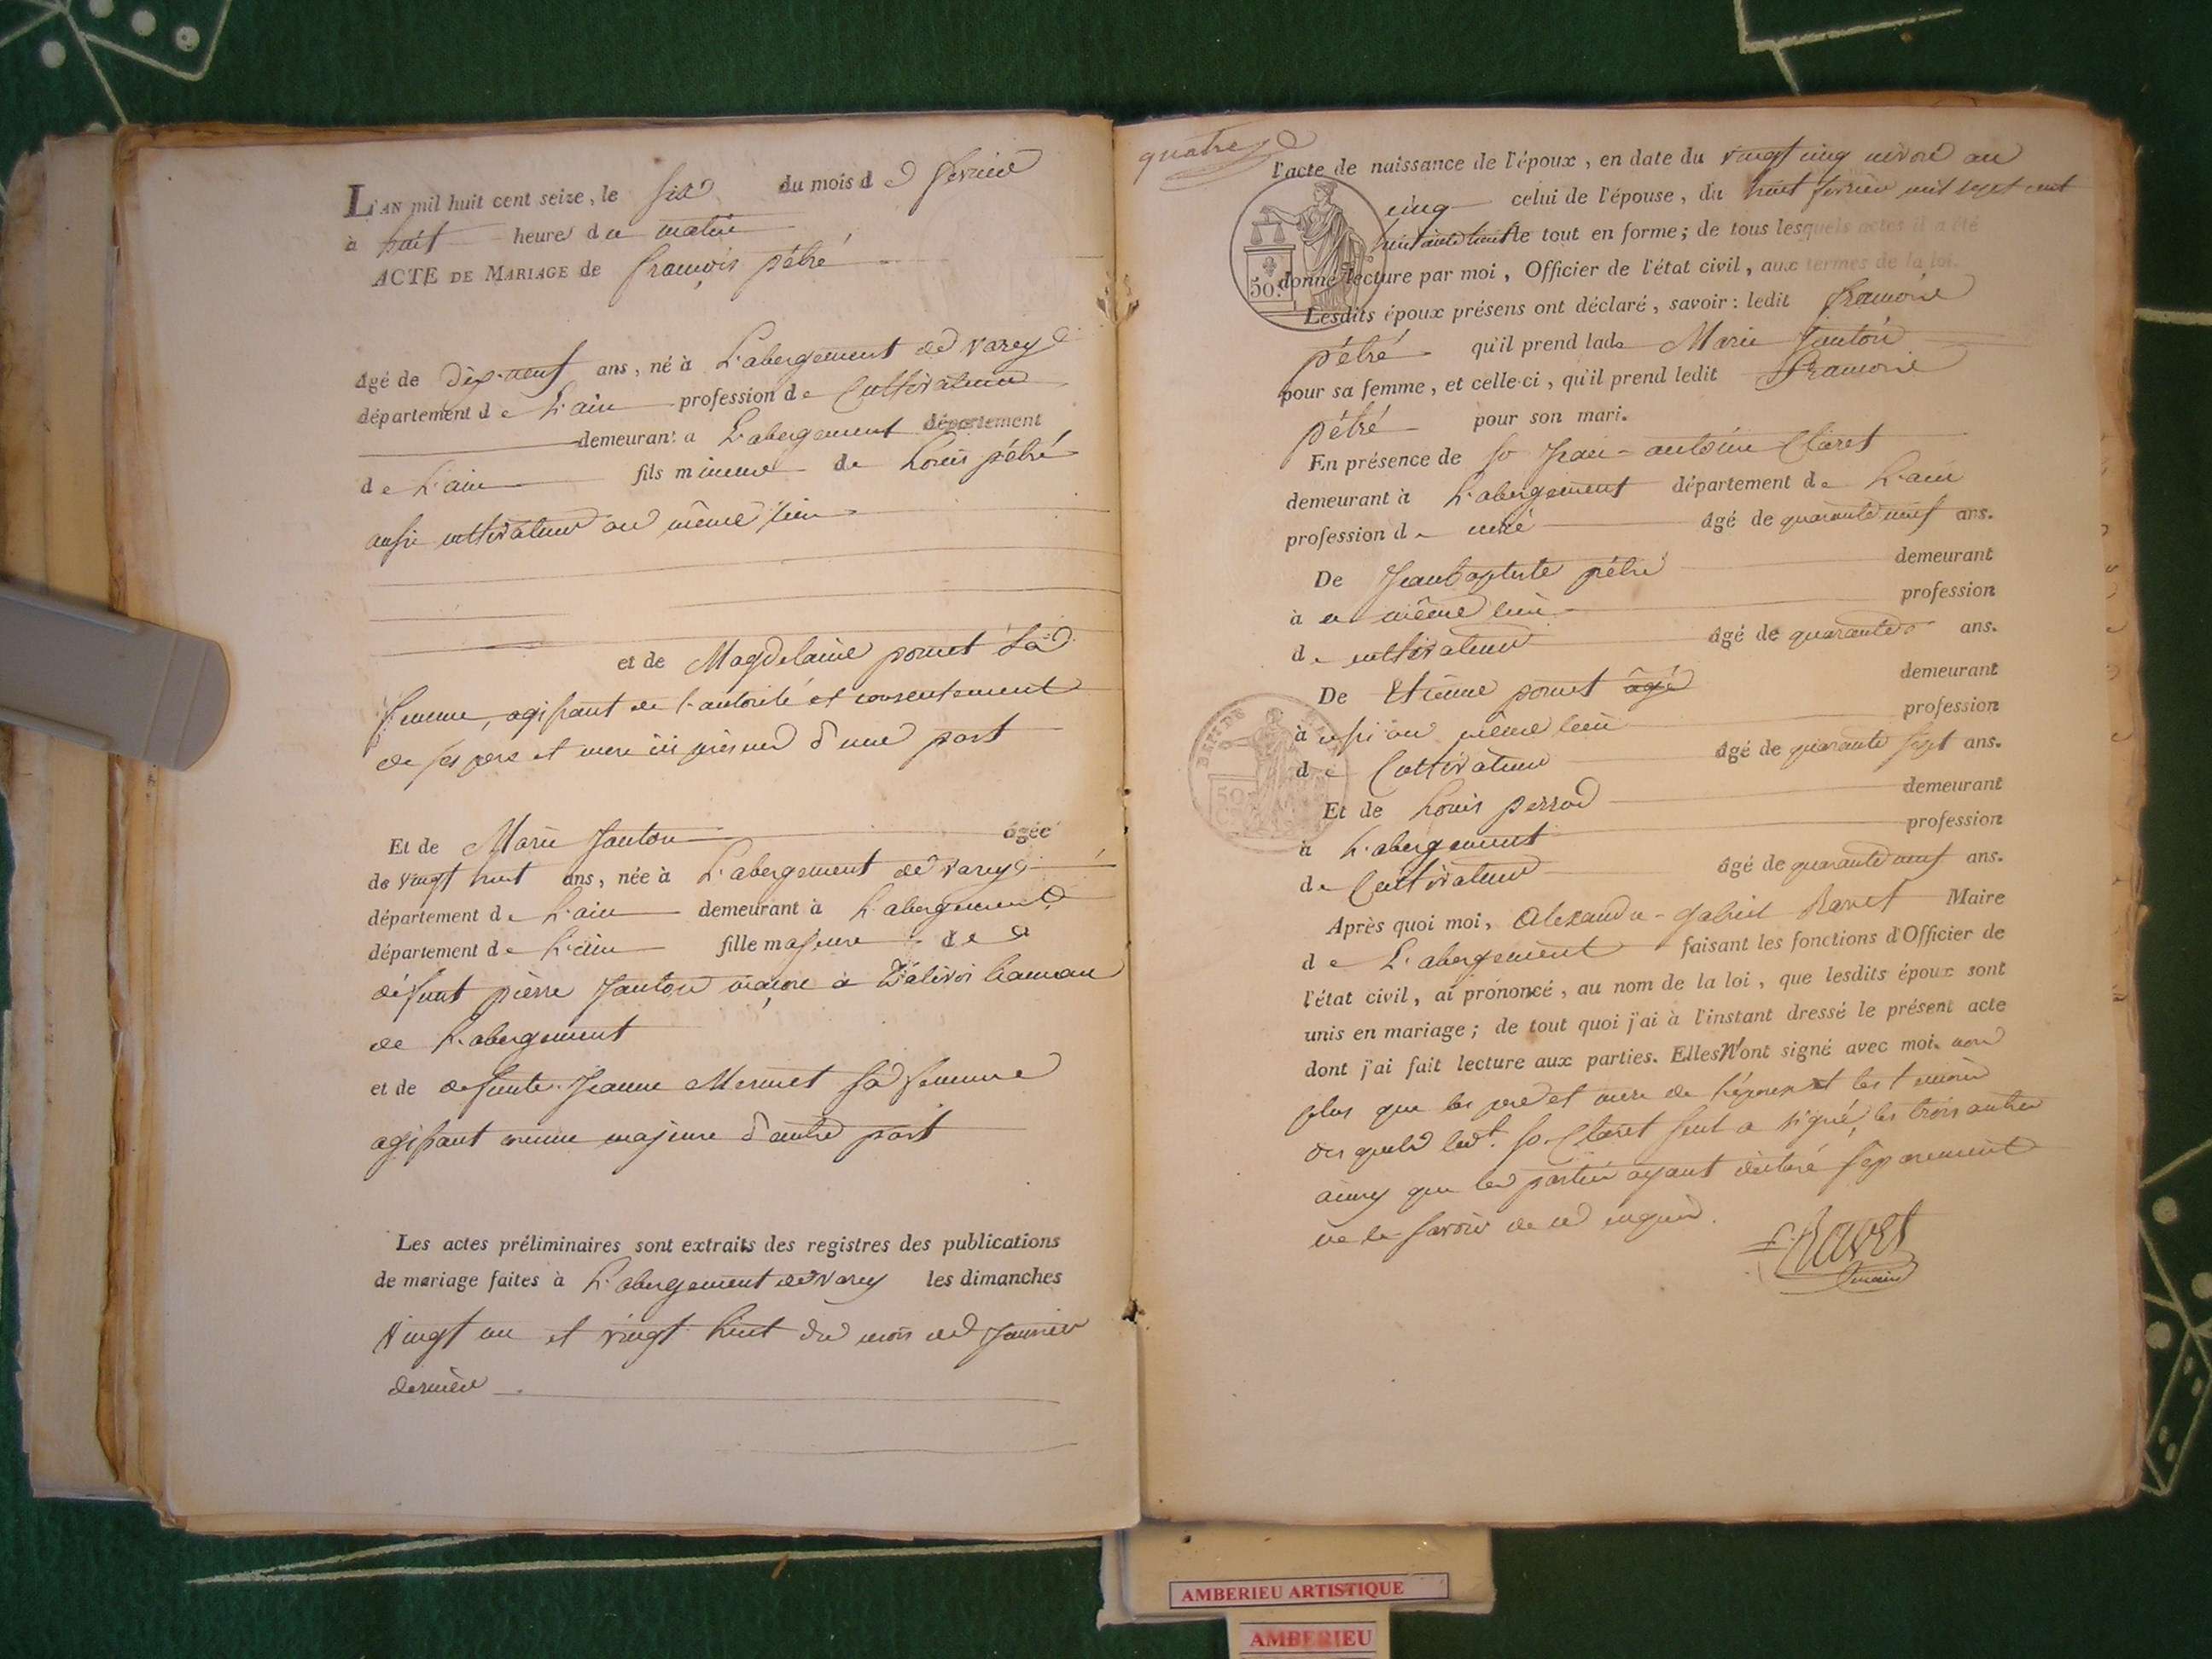 L'AN mil huit cent seize, le six du mois de fevrier
à huit heures du matin
ACTE DE MARIAGE de françois pétré
âgé de dix-neuf ans, né à L'abergement de varey
département de L'ain profession de Cultivateur
demeurant a L'abergement département
de L'ain fils mineur de Louis pétré
aussi cultivateur au même lieu
et de Magdelaine pomet sa
femme, agissant de l'autorité et consentement
de ses pere et mere ici présens d'une part
Et de Marie Janton âgée
de vingt huit ans, née à L'abergement de varey
département de L'ain demeurant à L'abergement
département de L'ain fille majeure de
défunt pierre Janton maçon à hameau
de L'abergement
et de defunte Jeanne Mermet sa femme
agissant comme majeure d'autre part
Les actes préliminaires sont extraits des registres des publications
de mariage faites à L'abergement de varey les dimanches
Vingt un et vingt huit du mois de Janvier
dernier
quatre
l'acte de naissance de l'époux, en date du vingt cinq nivose an
cinq celui de l'épouse, du huit fevrier mil sept cent
le tout en forme; de tous lesquels actes il a été
donné lecture par moi, Officier de l'état civil, aux termes de la loi.
50.
Lesdits époux présens ont déclaré, savoir: ledit francois
pétré qu'il prend lade Marie Janton
pour sa femme, et celle-ci, qu'il prend ledit francois
pétré pour son mari.
En présence de sr Jean-antoine Claret
demeurant à L'abergement département de L'ain
profession de curé âgé de quarante neuf ans.
De Jean baptiste pétré demeurant
à ce même lieu profession
de cultivateur âgé de quarante ans.
De Etienne pomet âgé demeurant
à aussi au même lieu profession
de Cultivateur âgé de quarante sept ans.
50
Et de Louis perrod demeurant
à L'abergement profession
de Cultivateur âgé de quarante neuf ans.
Après quoi moi, Alexandre-gabriel Ravet Maire
de L'abergement faisant les fonctions d'Officier de
l'état civil, ai prononcé, au nom de la loi, que lesdits époux sont
unis en mariage; de tout quoi j'ai à l'instant dressé le présent acte
dont j'ai fait lecture aux parties. Elles n'ont signé avec moi. non
plus que les pere et mere de l'époux et les témoins
des quels ledt. sr Claret seul a signé, les trois autres
ainsy que les parties ayant déclaré séparement
ne le savoir de ce enquis.
Ravet
maire
AMBERIEU ARTISTIQUE
AMBERIEU